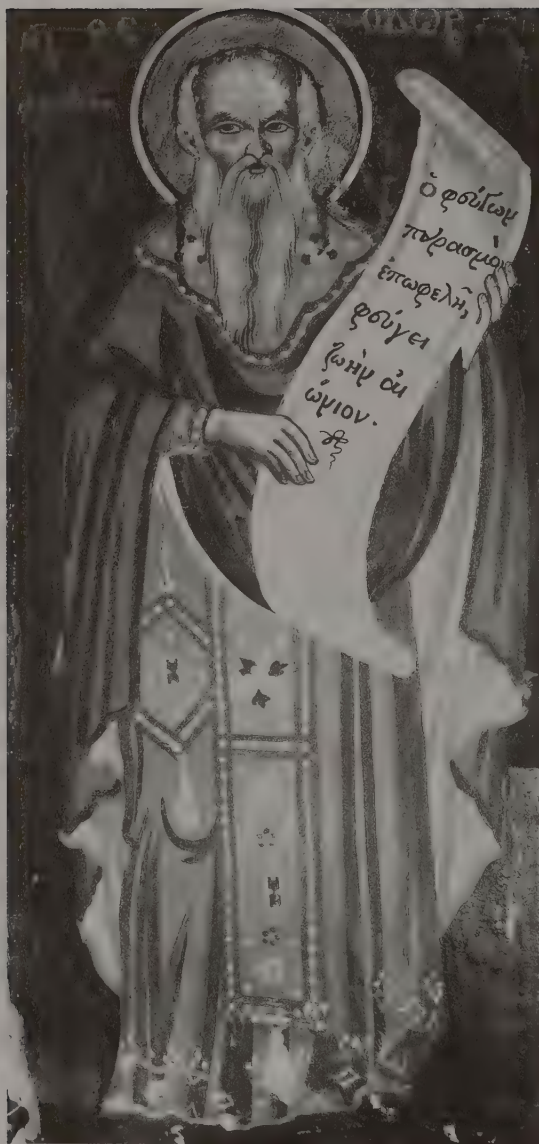 ὁ φεύγων
πειρασμὸν
ἐπωφελῆ,
φεύγει
ζωὴν αἰ
ώνιον.